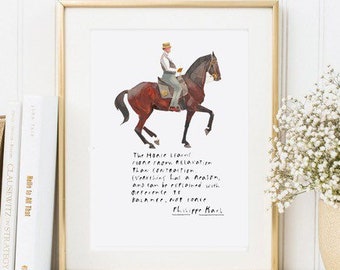 CLAUSEWITZ-STRATEGY
Made to Last
The Horse learns
more from relaxation
than contraction
Everything has a reason,
and can be explained with
reference to
balance, not force
Philippe Karl